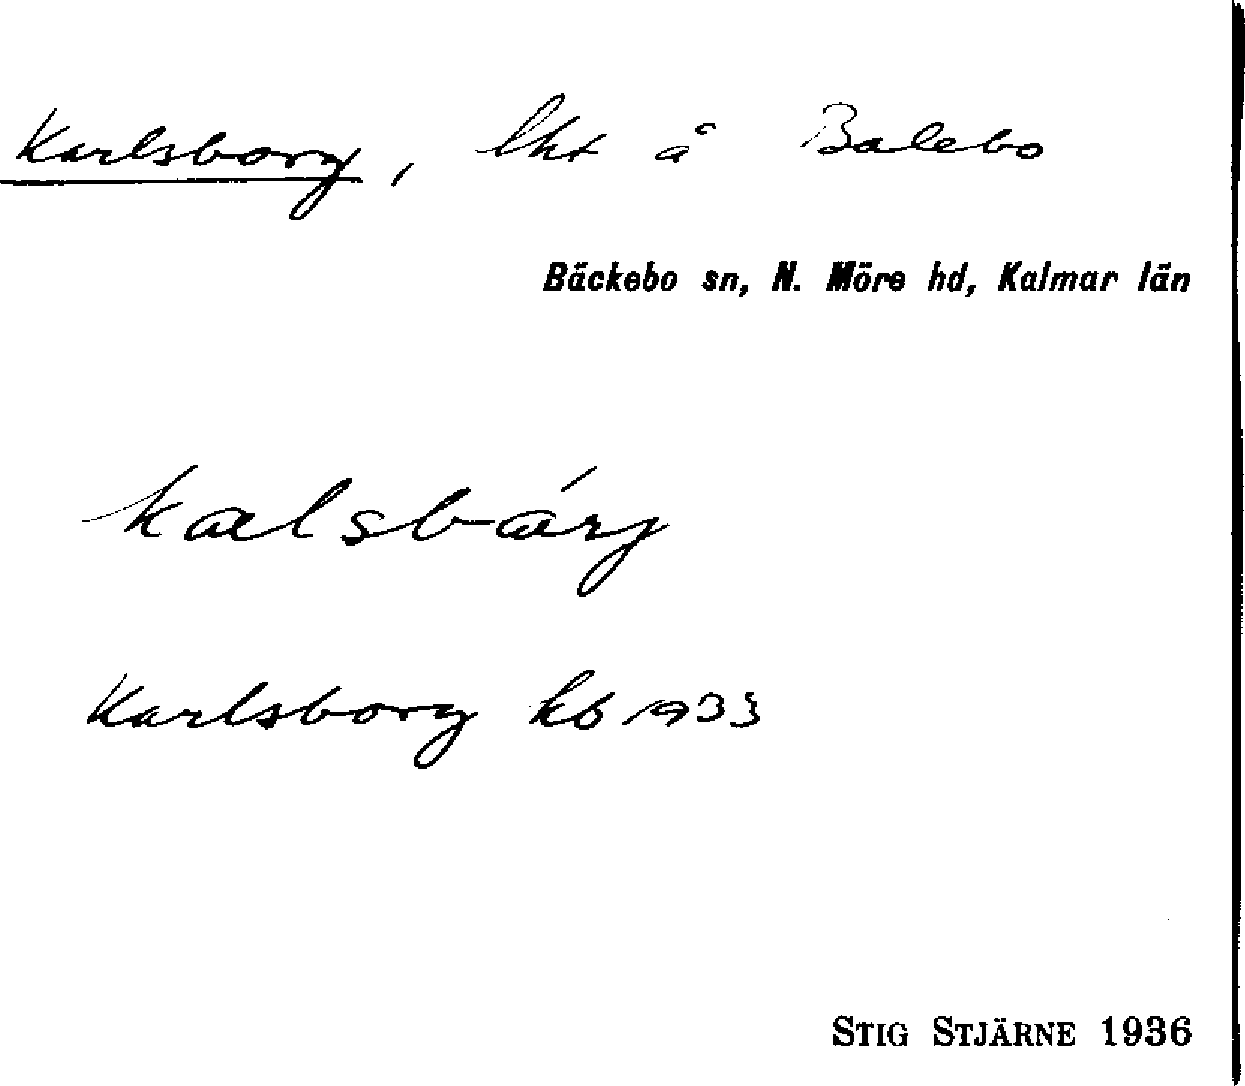 Karlsborg, lht å Balebo
Bäckebo sn, N. Möre hd, Kalmar län
kalsbárj
Karlsborg kb 1933
STIG STJÄRNE 1936